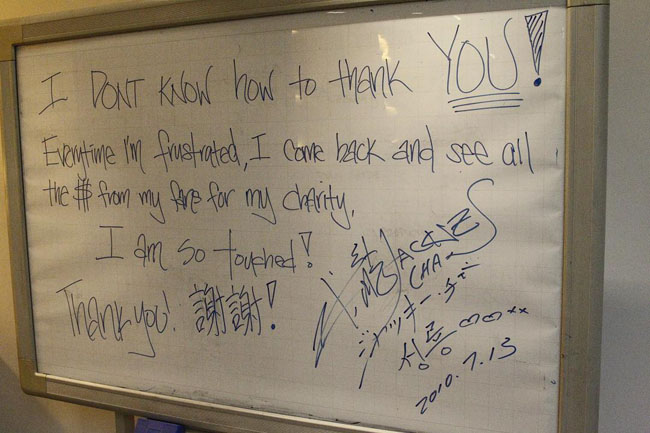 I DONT KNOW how to thank YOU!
Everytime I'm frustrated, I come back and see all
the $ from my fans for my charity.
I am so touched!
Thank you! 謝謝!
JACKIE
CHAN
ジャッキー・チェン
2010.7.13